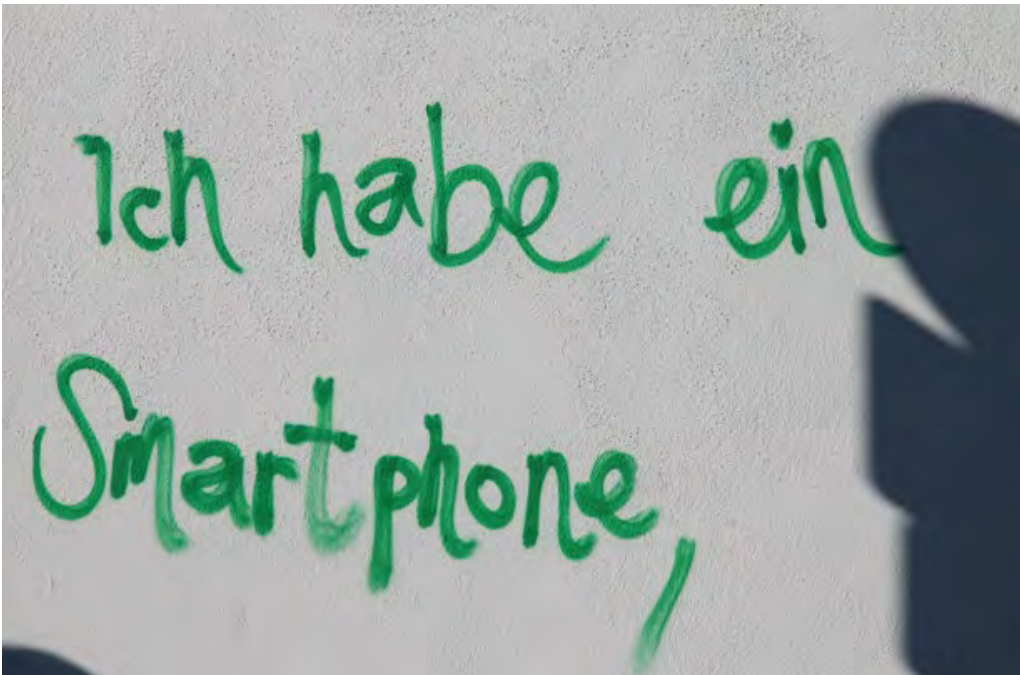 Ich habe ein
Smartphone,